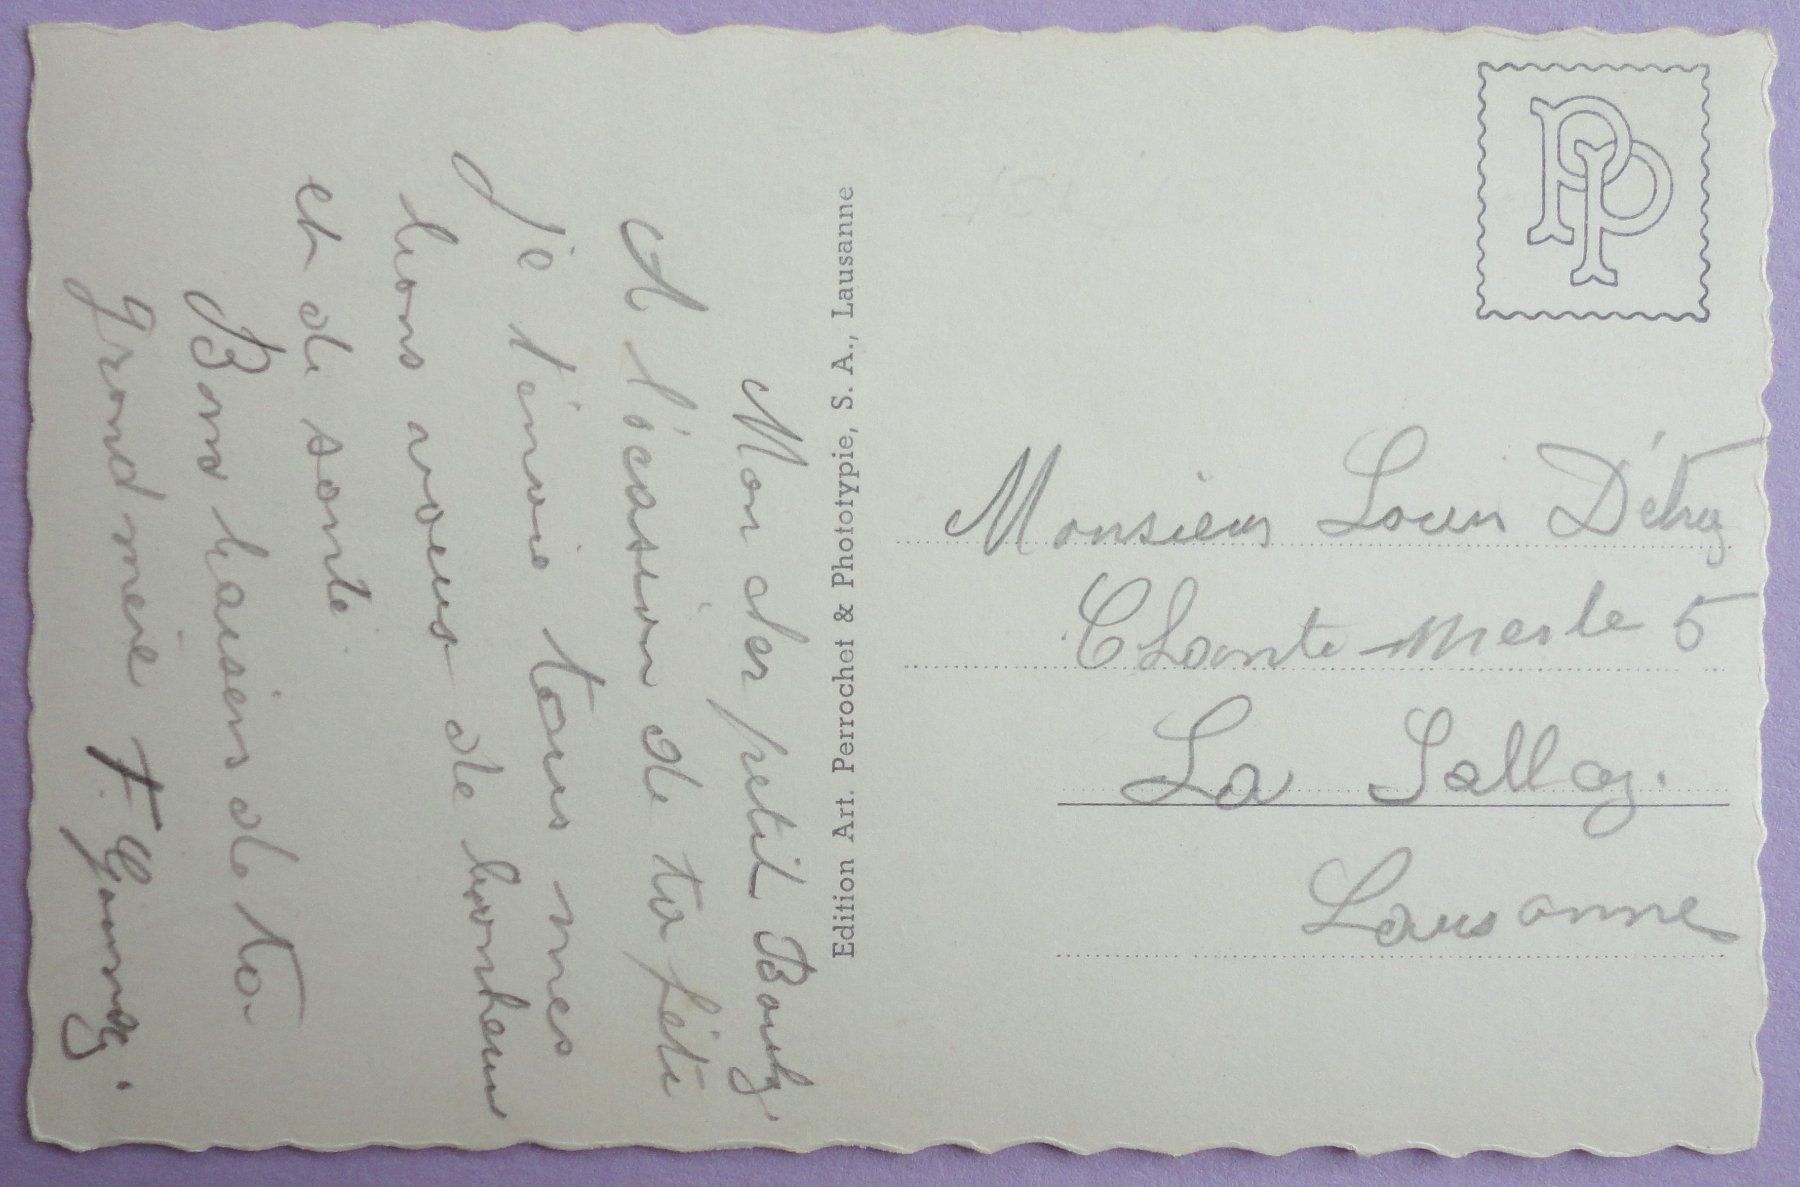 Mon cher petit Bouby
A l'ocassion de ta fête
je t'envoie tous mes
bons voeus de bonheur
et de santé.
Bons baisers de ta
grand mère F.
Edition Art. Perrochet & Phototypie, S. A., Lausanne
PP
Monsieur Louis Détraz
Chante-merle 5
La Sallaz.
Lausanne